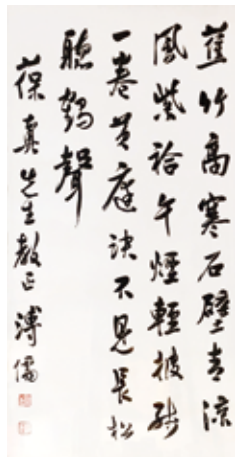 蕉竹高寒石壁青涼
風紫袷午煙輕披殘
一卷黃庭訣不見長松
聽鶴聲
葆真先生教正 溥儒